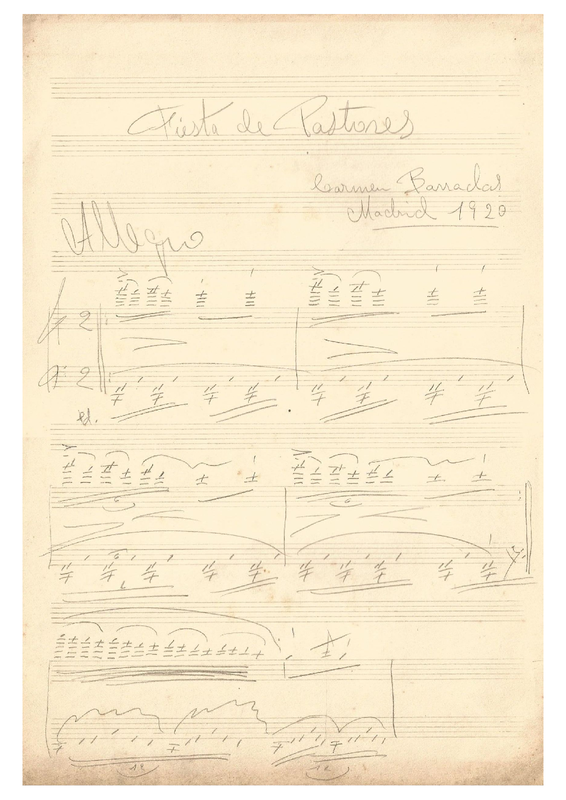 Fiesta de Pastores
Carmen Barradas
Madrid 1920
Allegro
2
2
6
6
6
12
12